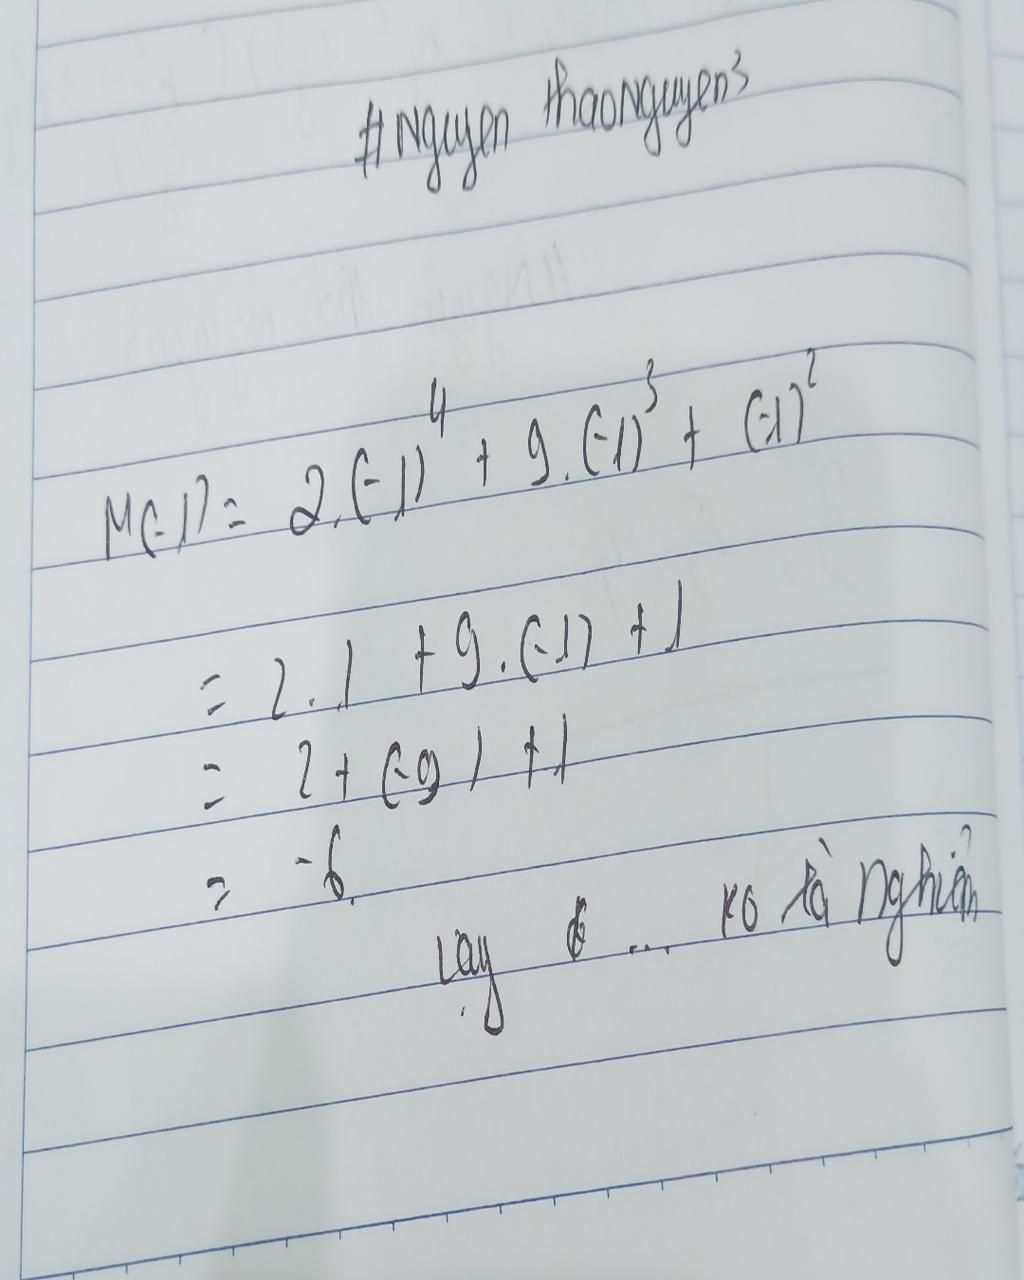 #Nguyen thaoNguyen3
M(-1) = 2.(-1)⁴ + 9.(-1)³ + (-1)²
= 2.1 + 9.(-1) + 1
= 2 + (-9) + 1
= -6.
... ko là nghiệm